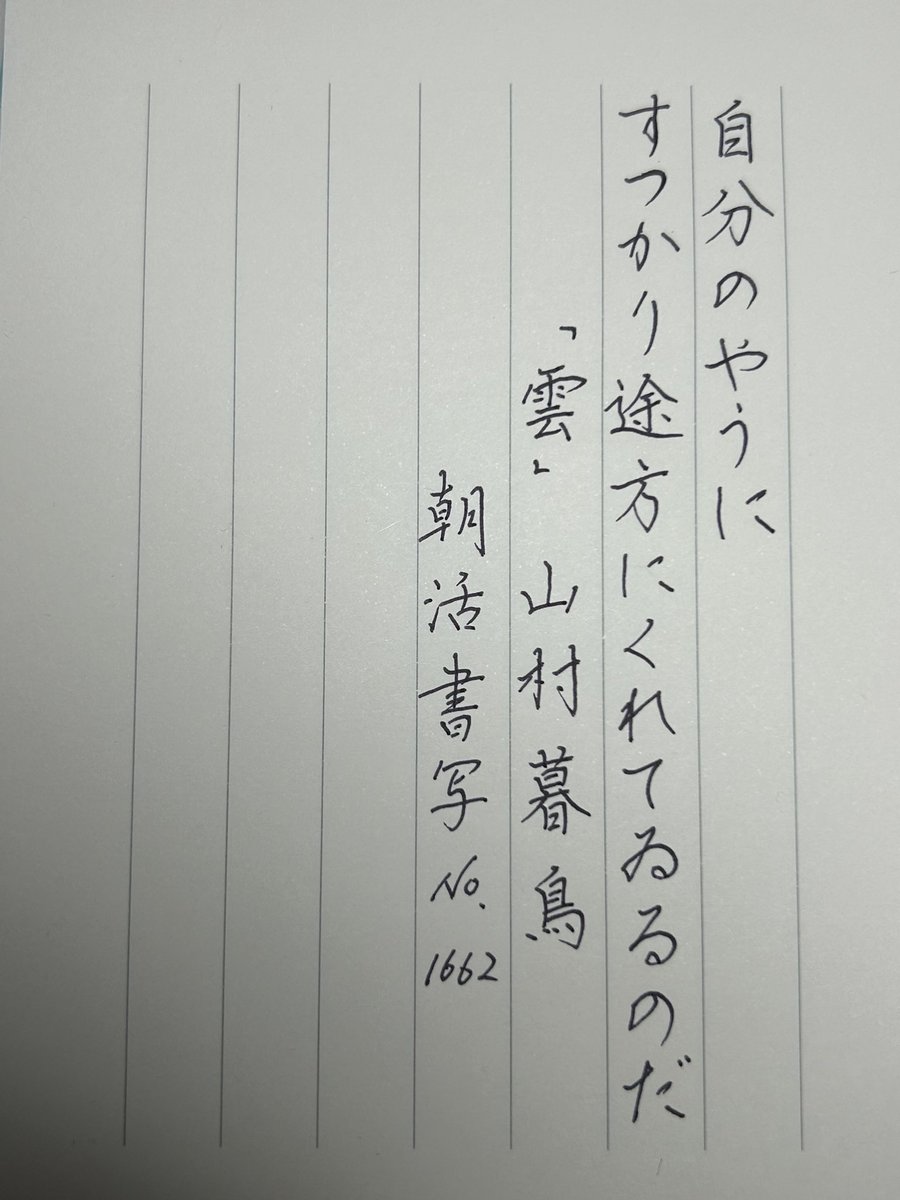 自分のやうに
すつかり途方にくれてゐるのだ
「雲」 山村暮鳥
朝活書写 No. 1662